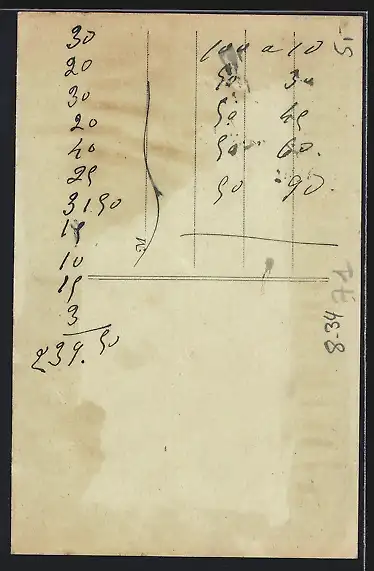 30
20
30
20
40
25
31 50
15
10
15
3
239.50
100 a 10
50 30
50 45
50 60.
50 90.
8-34